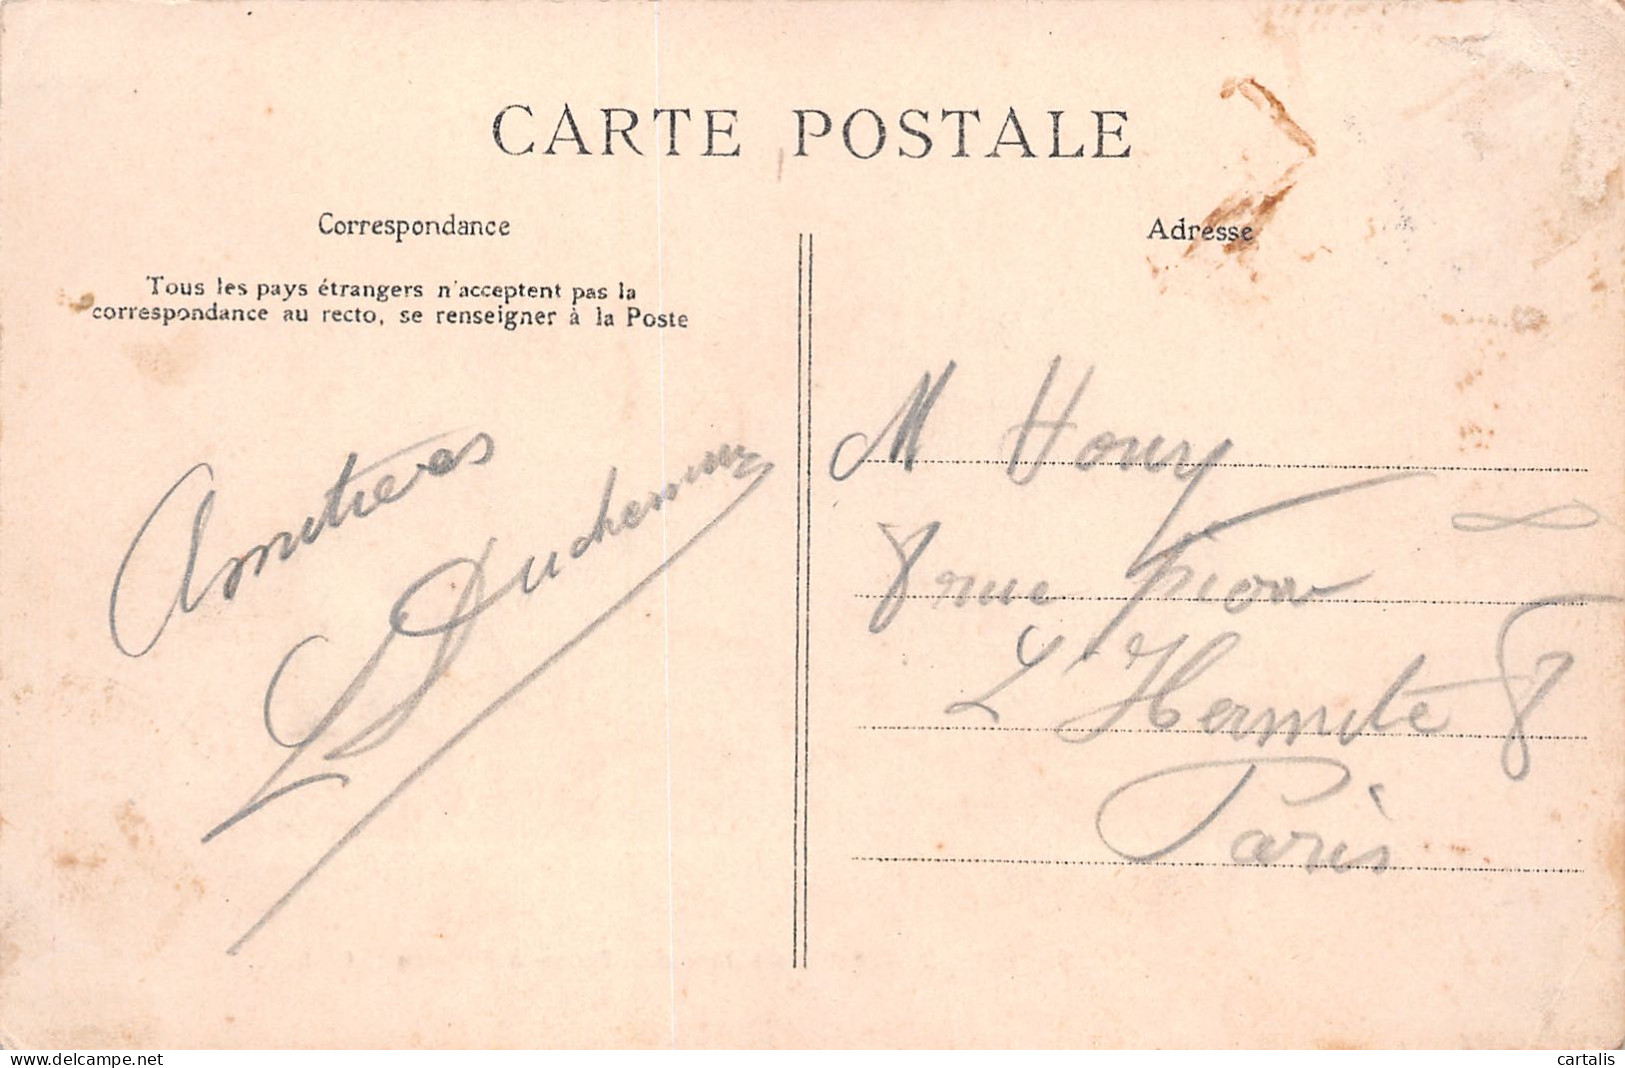 CARTE POSTALE
Correspondance
Tous les pays étrangers n'acceptent pas la
correspondance au recto, se renseigner à la Poste
Amitieres
L Duchemin
Adresse
M Houry
8 rue
L'Hermite 8
Paris
www.delcampe.net
cartalis